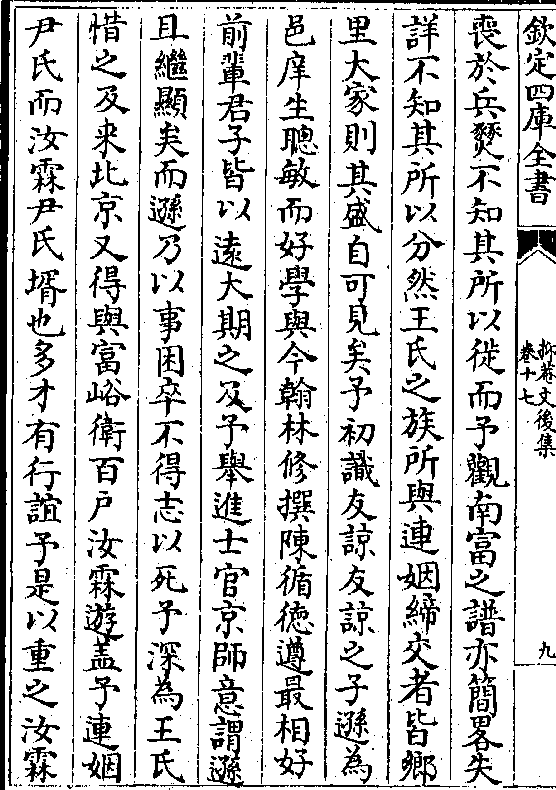 欽定四庫全書
抑菴文後集
卷十七
九
喪於兵燹不知其所以徙而予觀南富之譜亦簡畧失
詳不知其所以分然王氏之族所與連姻締交者皆鄉
里大家則其盛自可見矣予初識友諒友諒之子遜為
邑庠生聰敏而好學與今翰林修撰陳循徳遵最相好
前輩君子皆以遠大期之及予舉進士官京師意謂遜
且繼顯矣而遜乃以事困卒不得志以死予深為王氏
惜之及来北京又得與富峪衛百戸汝霖遊盖予連姻
尹氏而汝霖尹氏壻也多才有行誼予是以重之汝霖